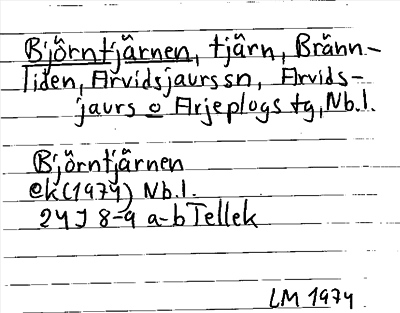 Björntjärnen, tjärn, Bränn-
liden, Arvidsjaurs sn, Arvids-
jaurs o Arjeplogs tg, Nb.l.
Björntjärnen
ek (1974) Nb.l.
24J 8-9 a-b Tellek
LM 1974